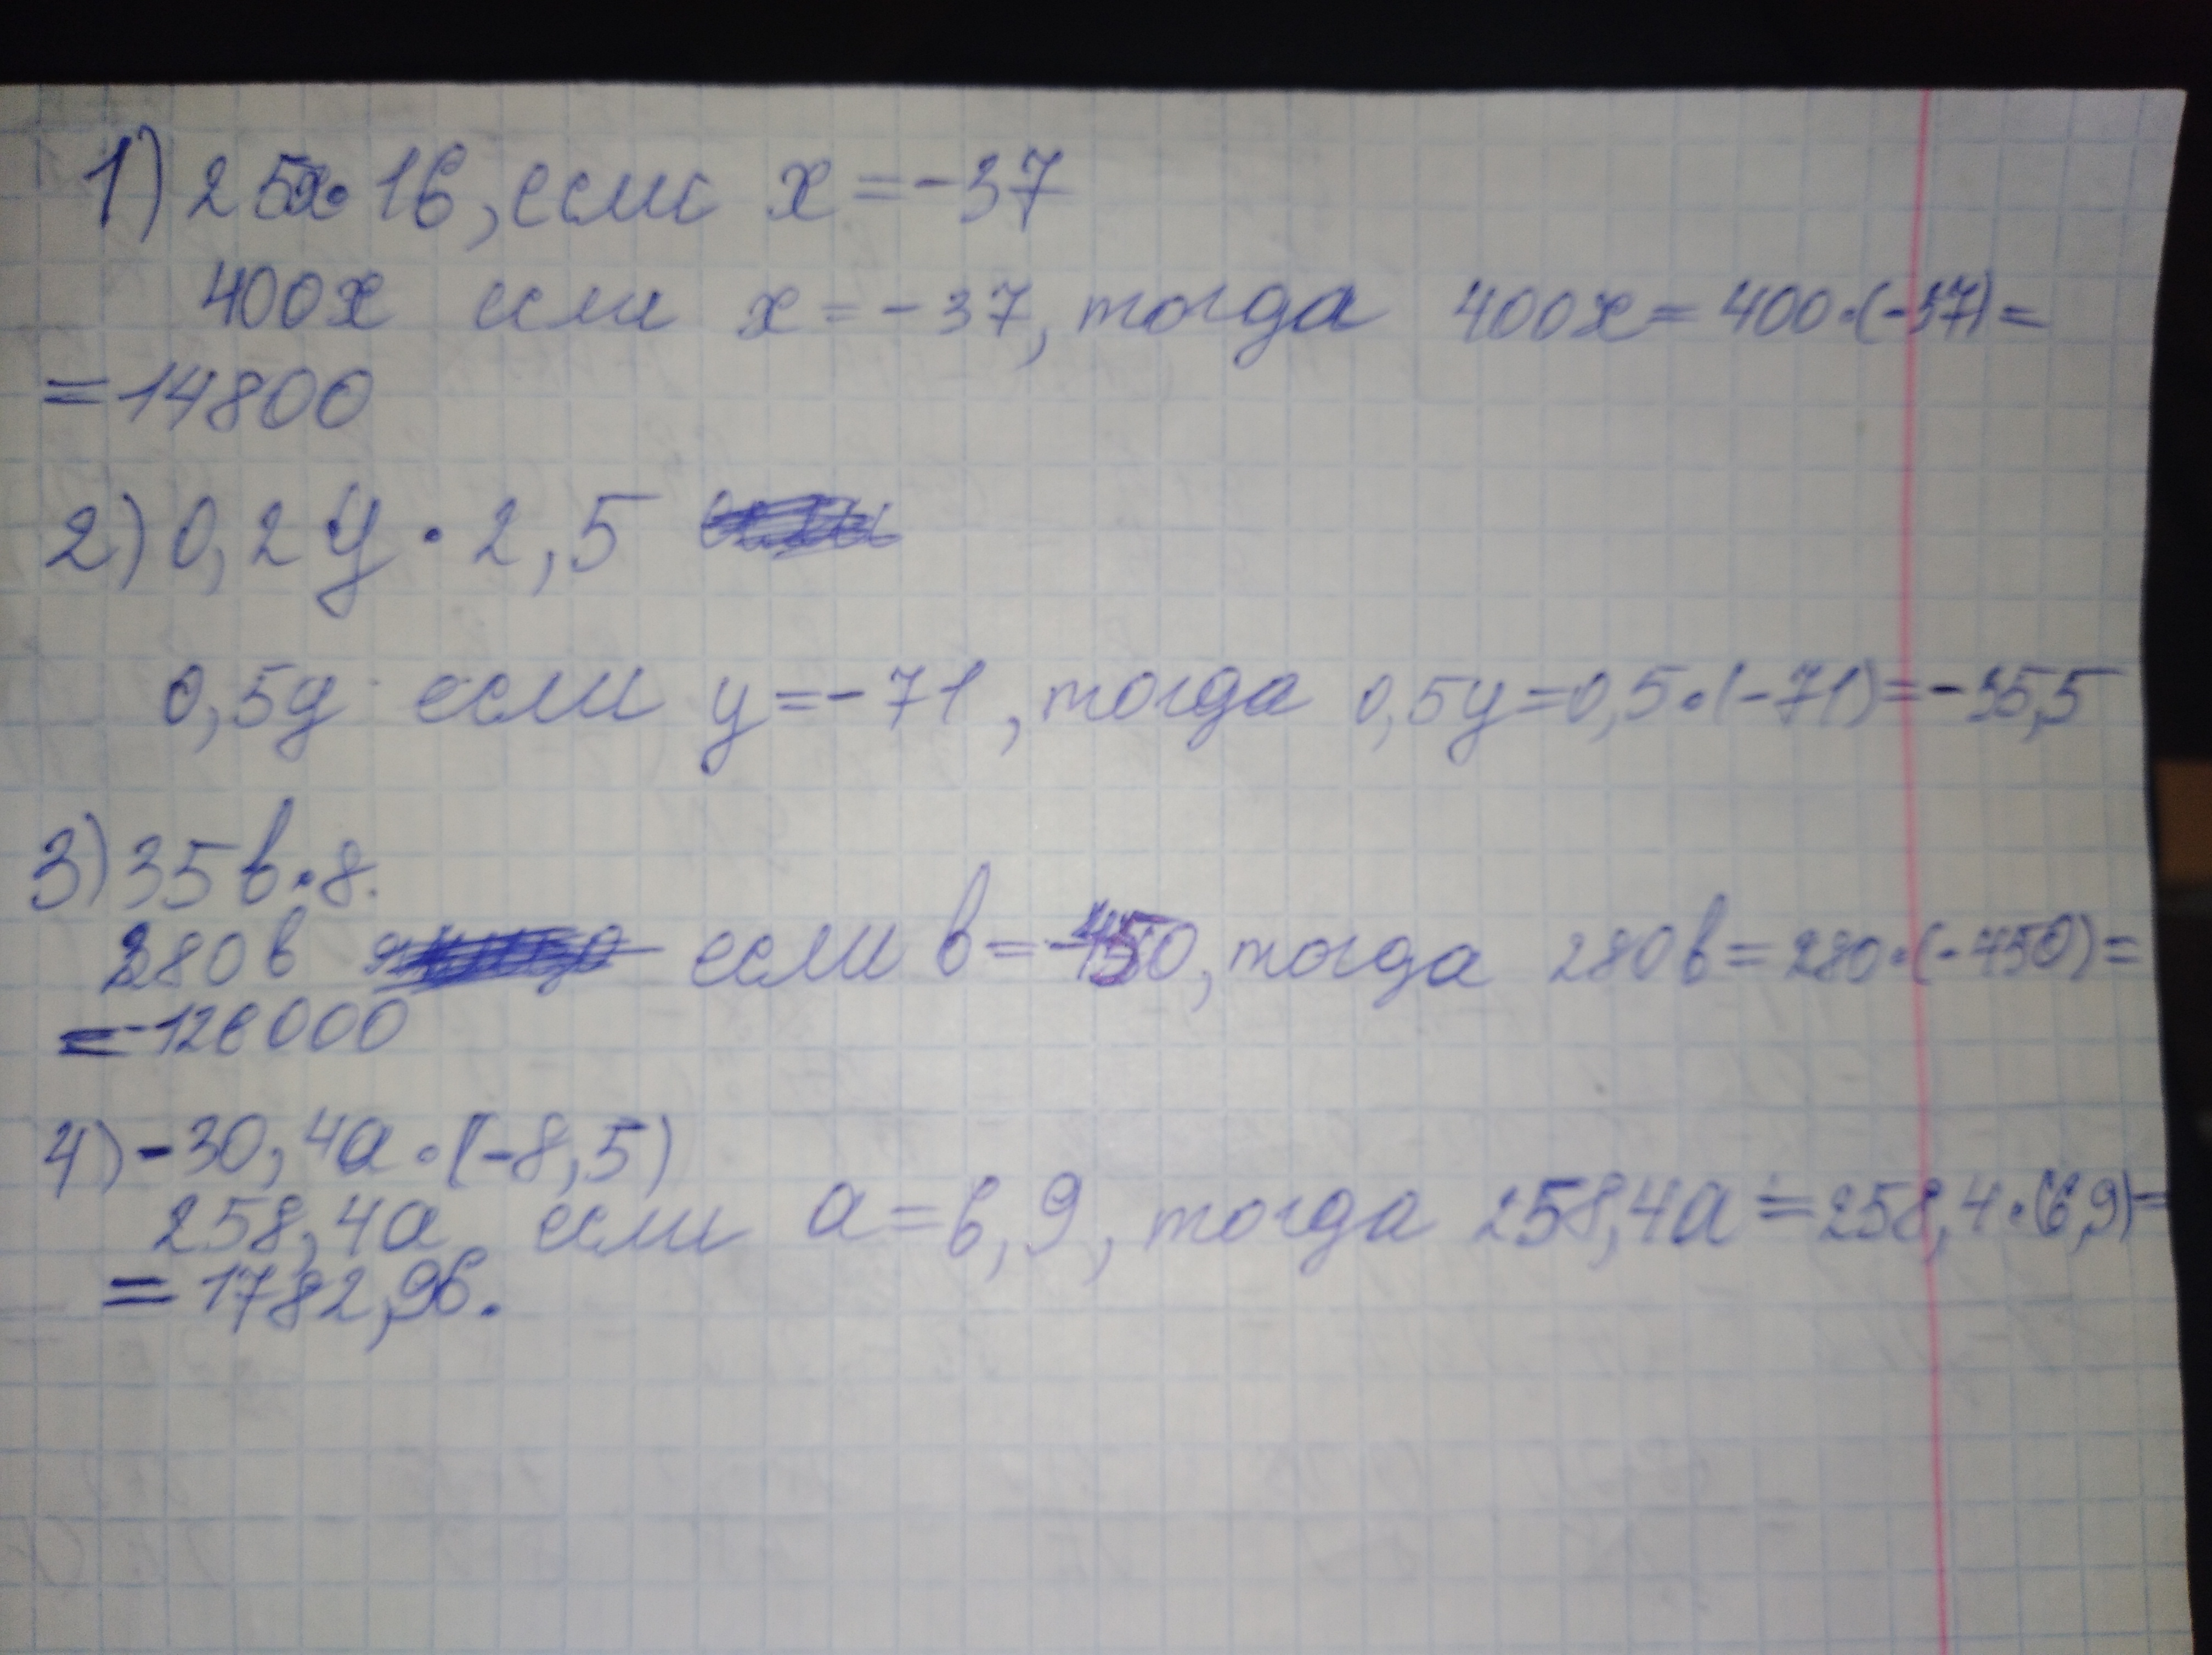 1) 25x·16, если x=-37
400x если x=-37, тогда 400x=400·(-37)=
=-14800
2) 0,2y·2,5
0,5y если y=-71, тогда 0,5y=0,5·(-71)=-35,5
3) 35в·8.
280в если в=-450, тогда 280в=280·(-450)=
=-126000
4) -30,4a·(-8,5)
258,4a если a=6,9, тогда 258,4a=258,4·(6,9)=
=1782,96.